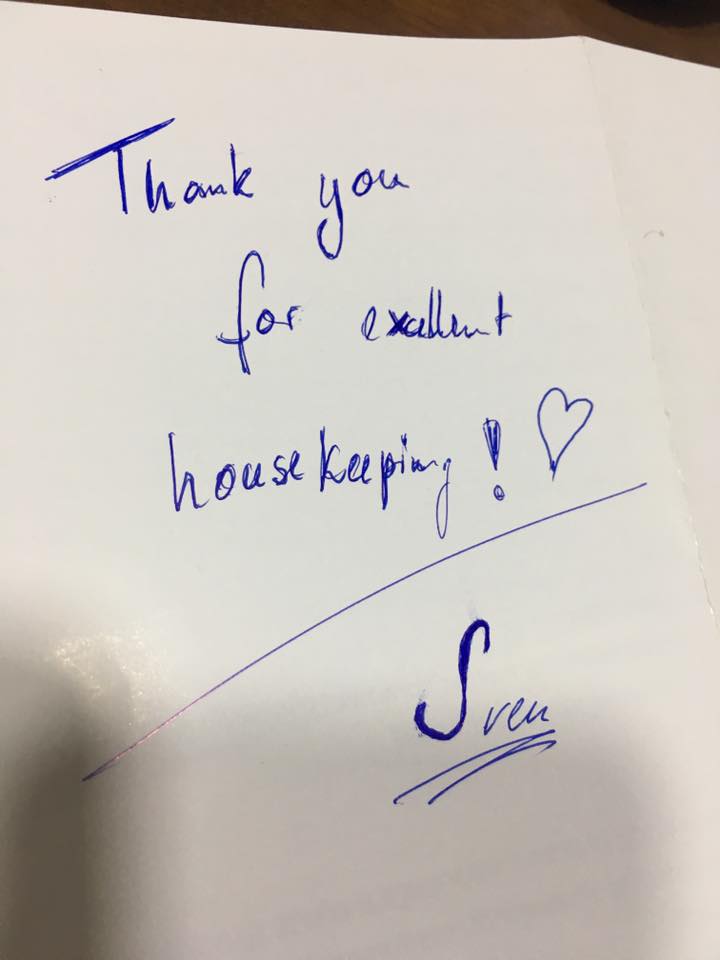 Thank you
for exellent
housekeeping! ♡
Sven